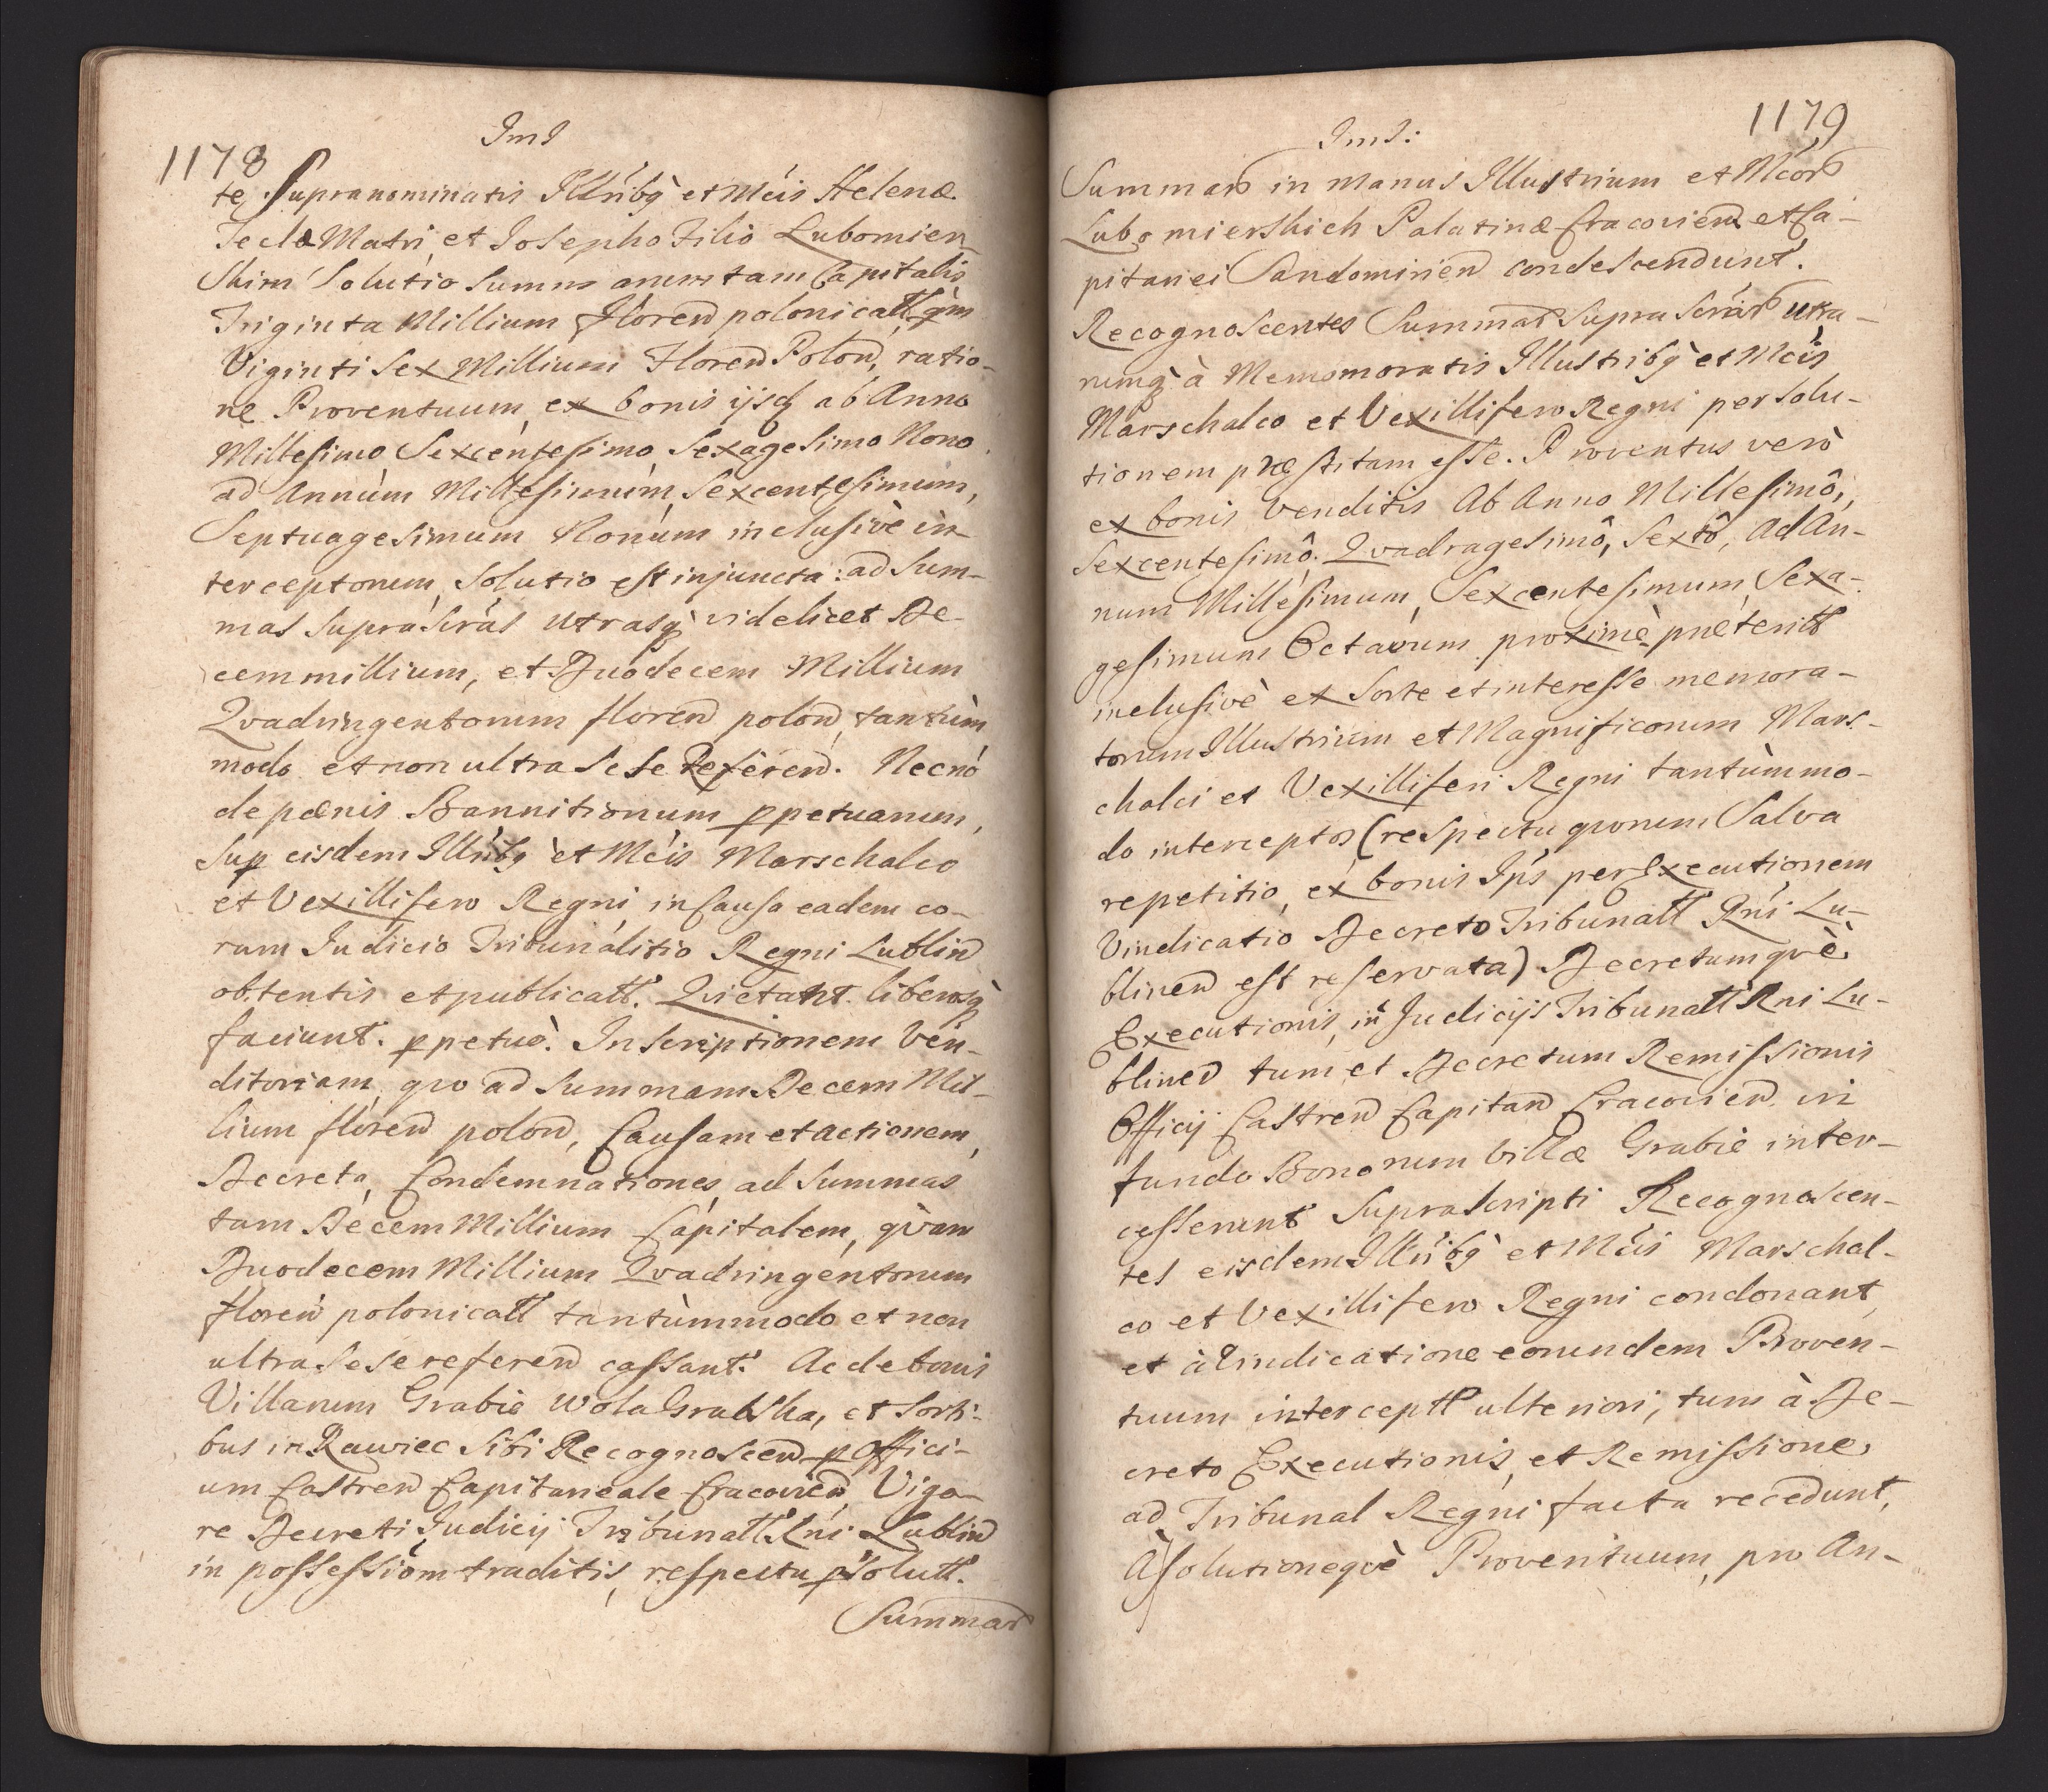 1178
ImI
te Supranominatis Illribq et Mcis Helenæ
Teclæ Matri, et Josepho Filio Lubomier
Skim Solutio Summ tam Capitalis
Triginta Millium floren polonicall qm
Viginti Sex Millium Floren Polon, ratio-
ne Proventuum ex bonis ijsq ab Anno
Millesimo Sexcentesimo Sexagesimo Nono
ad Annum Millesimum Sexcentesimum,
Septuagesimum Nonum inclusivè in
terceptorum, solutio est injuncta: ad Sum-
mas supra scrás utrasq videlicet De-
cem millium, et Duodecem Millium
Qvadringentorum floren polon, tantùm
modo et non ultra sese Referen. Necnó
de pænis Bannitionum ppetuarum,
Sup eisdem Illribq et Mcis Marschalco
et Vexillifero Regni in Causa eadem co-
ram Judicio Tribunálitio Regni Lublin
obtentis et publicatt. Qvietant liberosq
faciunt. ppetuò. Inscriptionem Ven-
ditoriam qvo ad Summam Decem Mil-
lium floren polon, Causam et actionem,
Decreta, Condemnationes ad Summas
tam Decem Millium Capitalem, qvam
Duodecem Millium Qvadringentorum
floren polonicall tantùmmodo et non
ultra sese referen cassant. Ac de bonis
Villarum Grabie Wola Grabska, et Sorti-
bus in Rawiec sibi Recognoscen p Offici-
um Castren Capitaneale Cracovien Vigo-
re Decreti Judicij Tribunall Rni Lublin
in possessiōm traditis, respectu psolutt.
Summar
1179
ImI:
Summar in manus Illustrium et Mcor
Lubomierskich Palatinæ Cracovien et Ca-
pitanei Sandomirien condescendunt.
Recognoscentes Summar Supra Scrár utra-
rumq à Memomoratis Illustribq et Mcis
Marschalco et Vexillifero Regni persolu-
tionem præstitam esse. Proventus verò
ex bonis venditis Ab Anno Millesimô,
Sexcentesimô Qvadragesimô, Sextô, Ad An-
num Millesimum, Sexcentesimum Sexa-
gesimum Octavum proximè præteritt
inclusivè ex Sorte et interesse memora-
torum Illustrium et Magnificorum Mars-
chalci et Vexilliferi Regni tantùmmo-
do interceptos (respectu qvorum Salva
repetitio, ex bonis Ips per Executionem
Vindicatio Decreto Tribunall Rni Lu-
blinen est reservata) Decretumqvè
Executionis, in Judicijs Tribunall Rni Lu-
blinen tum et Decretum Remissionis
Officij Castren Capitan Cracovien in
fundo Bonorum villæ Grabie inter-
cesserunt Suprascripti Recognoscen-
tes eisdem Illribq et Mcis Marschal-
co et Vexillifero Regni condonant,
et à Vindicatione eorundem Proven-
tuum intercept ulteriori, tum à De-
creto Executionis, et Remissione
ad Tribunal Regni facta recedunt,
A solutioneqvè Proventuum, pro An-